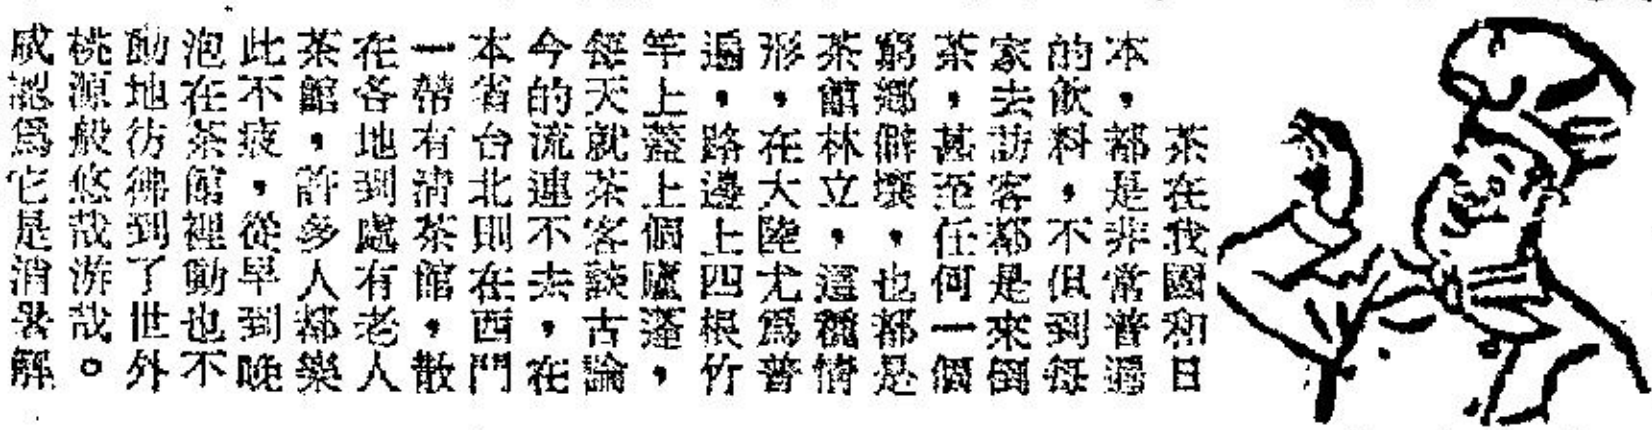 茶在我國和日
本，都是非常普遍
的飲料，不但到每
家去訪客都是來倒
茶，甚至任何一個
窮鄉僻壤，也都是
茶館林立，這種情
形，在大陸尤爲普
遍，路邊上四根竹
竿上蓋上個廬蓬，
每天就茶客談古論
今的流連不去，在
本省台北則在西門
一帶有清茶館，散
在各地到處有老人
茶館，許多人都樂
此不疲，從早到晚
泡在茶館裡動也不
動地彷彿到了世外
桃源般悠哉游哉。
咸認爲它是消暑解